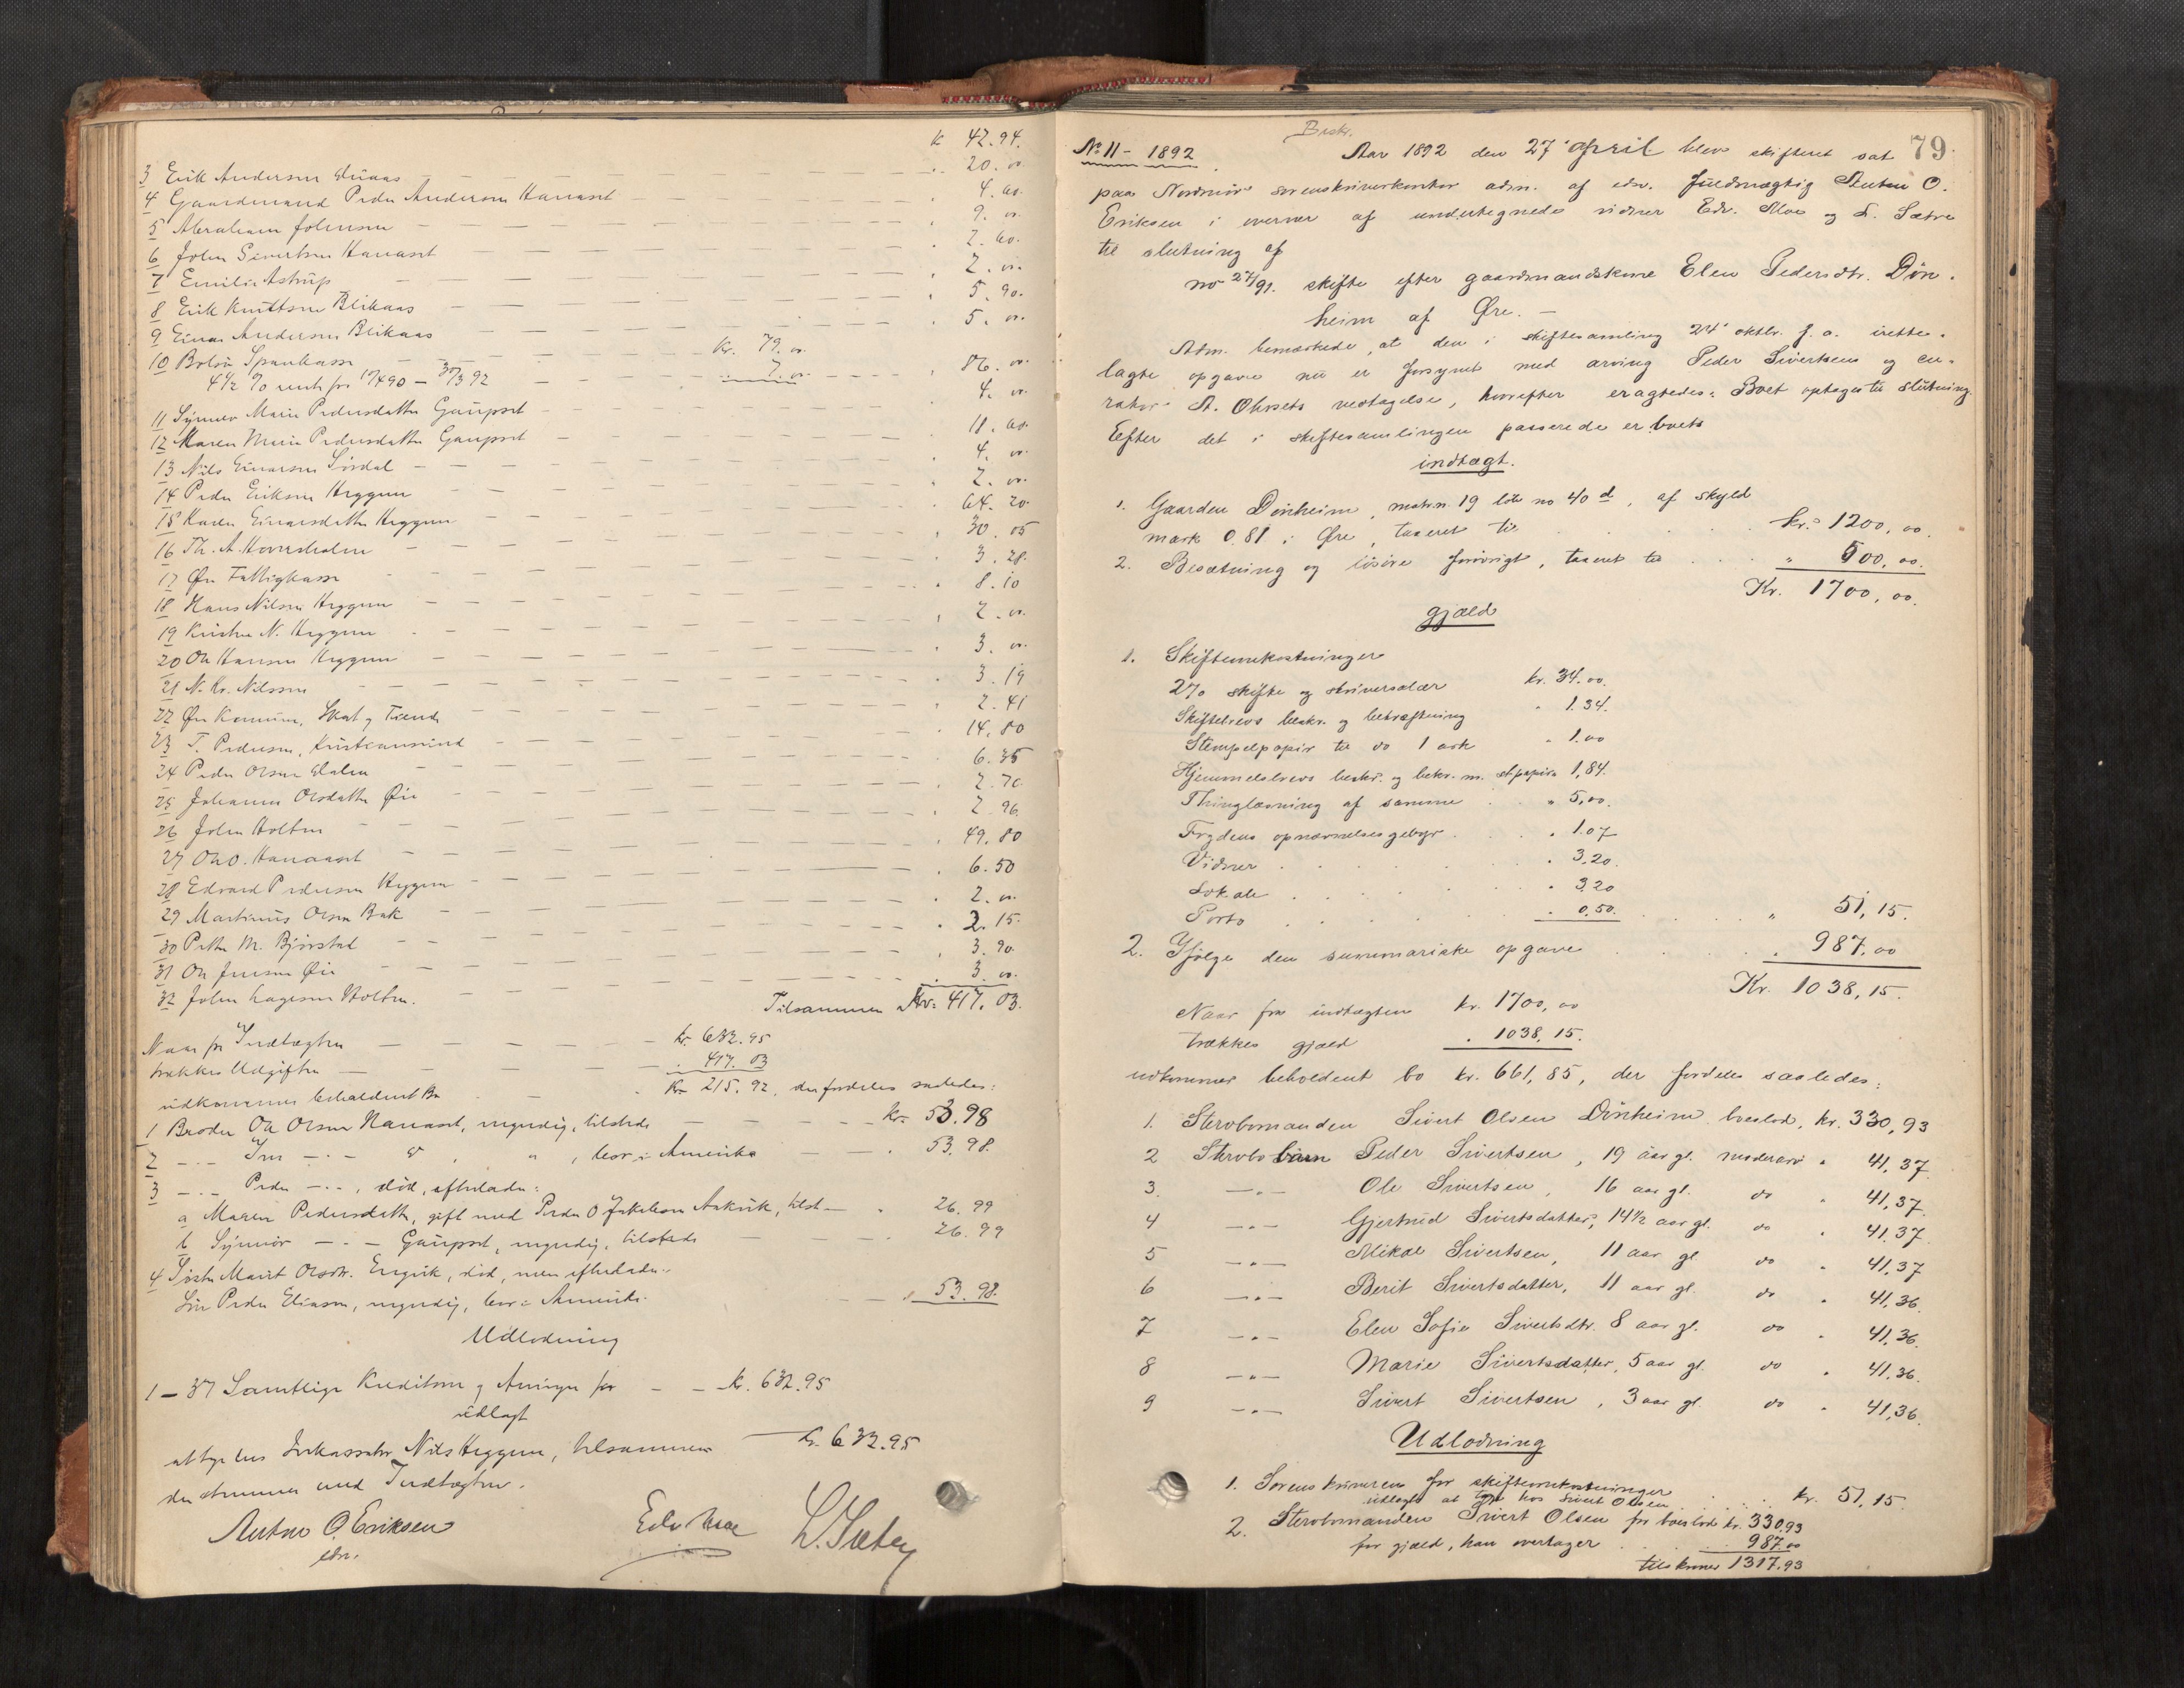 k 42.94.
3 Erik Andersen — — .. 20. oo
4 Gaardmand Peder Andersen Hanaset — . 4. 60.
5 Abraham Johnsen — . 9. oo.
6 John Sivertsen Hanaset — . 2. 60.
7 Emilie Astrup — . 2. oo.
8 Erik Knutsen Blikaas — . 5. 90.
9 Einar Andersen Blikaas — . 5. oo.
10 Bolsø Sparebank — Kr. 79. oo
4½ % rente fra — .. 7. oo. — . 86. oo
11 Synnøv Marie Pedersdatter Gaupset — . 4. oo
12 Maren Marie Pedersdatter Gaupset — . 11. 60.
13 Nils Einarsen Sørdal — . 4. oo.
14 Peder Eriksen Heggem — . 2. oo.
15 Karen Einarsdatter Heggem — . 64. 20.
16 Th. A. Hoversholm — . 30. 05
17 Øre Fattigkasse — . 3. 28.
18 Hans Nilsen Heggem — . 8. 10
19 Kristen N. Heggem — . 2. oo.
20 Ole Hansen Heggem — . 3. oo.
21 N. Kr. Nilssen — . 3. 19
22 Øre Kommune, Skat og Tiende . 2. 41
23 T. Pedersen, Kristiansund — . 14. 80
24 Peder Olsen — . 6. 35
25 Johanna Olsdatter Øie — . 2. 70.
26 John Holten — . 2. 96.
27 Ole O. Hanaset — . 49. 80
28 Edvard Pedersen Heggem — . 6. 50
29 Martinus Olsen Bak — . 2. oo.
30 Petter M. Bjørstad — . 2. 15.
31 Ole Jensen Øie — . 3. 90.
32 John Holten. — . 3. oo.
Tilsammen Kr. 417. 03.
Naar fra Indtægten — kr. 632.95
trækkes Udgiften — . 417. 03
udkommer beholdent Bo — Kr 215. 92. der fordeles saaledes:
1 Broder Ole Olsen Hanaset, myndig, tilstede — kr. 53. 98
2 —.— —.— , bor i Amerika — . 53. 98.
3 —.— Peder —.—, død, efterladn:
a Maren Pedersdatter, gift med Peder O Jakobsen Aakvik, tilst — . 26. 99
b Synnøv —.— Gaupset, myndig, tilstede — . 26. 99
4 Søster Marit Olsdtr. Engvik, død, men efterladn:
Søn Peder Eliasen, myndig, bor i Amerika — . 53. 98.
Udlodning
1 — 37 Samtlige Kreditorer og Arvinger for — kr. 632.95
udlagt
at tage hos Inkassator Nils Heggem, tilsammen — kr. 632.95
der stemmer med Indtægten.
Anton O. Eriksen
edv.
Edv Moe
L. Sæter
79
Beskr.
No 11 – 1892. Aar 1892 den 27' april blev skifteret sat
paa Nordmøre sorenskriverkontor adm. af edsv. fuldmægtig Anton O.
Eriksen i overvær af undertegnede vidner Edv. Moe og L. Sætre
til slutning af
no 27/91. skifte efter gaardmandskone Elen Pedersdtr. Døn-
heim af Øre. —
Adm. bemærkede, at den i skiftesamling 24' oktbr. f. a. irette-
lagte opgave nu er forsynet med arving Peder Sivertsens og cu-
rator A. Ohrsets vedtagelse, hvorefter eragtedes: Boet optages til slutning.
Efter det i skiftesamlingen passerede er boets
indtægt.
1. Gaarden Dønheim, matr.n. 19 løb no 40 d, af skyld
mark 0.81 i Øre, taxeret til . . . kr. 1200, oo.
2. Besætning og løsøre forøvrigt, taxeret til . . . " 500, oo.
Kr. 1700, oo.
gjæld
1. Skifteomkostninger
2% skifte og skriversalær kr. 34. oo.
Skiftebrevs beskr. og bekræftning " 1. 34.
Stempelpapir til do 1 ark " 1. oo
Hjemmelsbrevs beskr. og bekr. m. st.papir 1,84.
Thinglæsning af samme . . " 5, oo.
Fogdens opnævnelsesgebyr . . . 1. 07
Vidner . . . . 3. 20.
Lokale . . . . 3. 20
Porto . . . . 0. 50. . . . " 51, 15.
2. Ifølge den summariske opgave . . . . 987, oo
Kr. 1038, 15.
Naar fra indtægten kr. 1700, oo
trækkes gjæld . 1038, 15.
udkommer beholdent bo kr. 661, 85, der fordeles saaledes:
1. Stervbomanden Sivert Olsen Dønheim boeslod, kr. 330, 93
2 Stervbobarn Peder Sivertsen, 19 aar gl. modersarv " 41, 37.
3. —"— Ole Sivertsen, 16 aar gl. do . 41, 37.
4 —"— Gjertrud Sivertsdatter, 14½ aar gl. do . 41. 37
5 —"— Mikal Sivertsen, 11 aar gl. do . 41, 37
6 —"— Berit Sivertsdatter, 11 aar gl. do . 41, 36.
7 —"— Elen Sofie Sivertsdtr. 8 aar gl. do . 41, 36.
8 —"— Marie Sivertsdatter, 5 aar gl. do . 41, 36.
9 —"— Sivert Sivertsen, 3 aar gl. do . 41, 36.
Udlodning
1. Sorenskriveren for skifteomkostninger
udlagt at tage hos Sivert Olsen . . . kr. 51, 15.
2. Stervbomanden Sivert Olsen for boeslod kr. 330,93
for gjæld, han overtager . . . 987. oo
tilskommer 1317,93